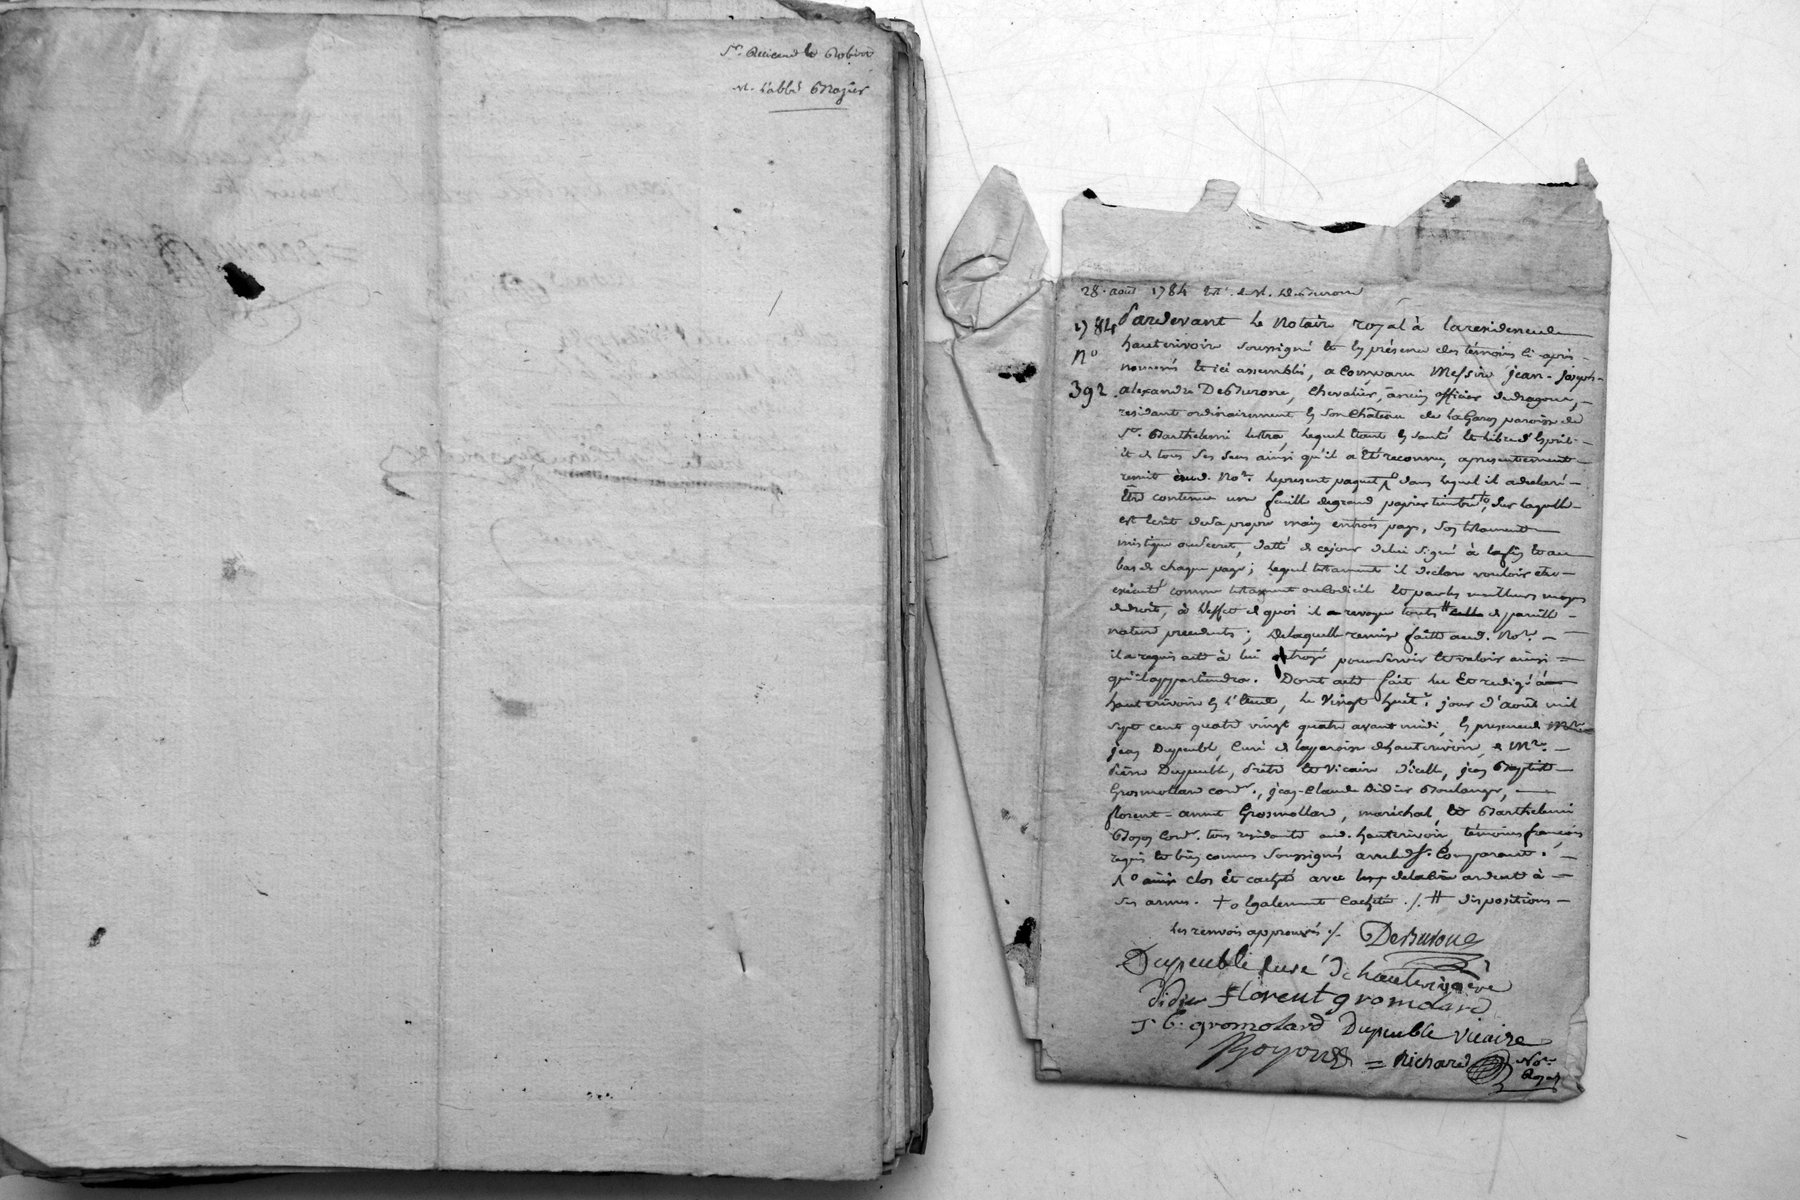 St. Quicend le Robert
M. l'abbé Grozier
28. août 1784 Test. de M. DeBurone
1784
N°
392.
Pardevant le Notaire royal à la residence de
hauterivoire soussigné et en présence des témoins ci-après
nommés et ici assemblés, a comparu Messire jean-joseph-
alexandre DeBurone, Chevalier, ancien officier de dragons,
residant ordinairement en son Château de la Garey paroisse de
St. Barthelemi lestra, lequel étant en santé et libre d'esprit
et de tous ses sens ainsi qu'il a été reconnu, a presentement
remis aud. Nore. le present paquet 1° dans lequel il a declaré
être contenu une feuille de grand papier timbré †o, sur laquelle
est écrit de sa propre main en trois pages, son testament
mistique ou secret, datté de ce jour de lui signé à la fin et au
bas de chaque page; lequel testament il declare vouloir être
executé comme testament ou codicile et par les meilleurs moyens
de droit, à l'effet de quoi il revoque toutes # de pareille
nature precedentes; de laquelle remise faite aud. Nore.
il a requis acte à lui octroyé pour servir et valoir ainsi
qu'il appartiendra. Dont acte fait lu et redigé à
hauterivoire en l'étude, le vingt huit. jour d'août mil
sept cent quatre vingt quatre avant midi, en presence de Mre.
jean Dupeuble, Curé de la paroisse d'hauterivoire, de Mre.
Pierre Dupeuble, Prêtre et Vicaire d'icelle, jean Baptiste
Grosmollard cordr., jean-Claude Didier Boulanger,
florent-annet Grosmollard, maréchal, et Barthelemi
Boyon Cordr. tous residants aud. hauterivoire, témoins françois
requis et bien connus soussignés avec led. Sr. Comparant.
1° ainsi clos et cacheté avec de la cire ardente à
ses armes. †o également cacheté ./. # dispositions
les renvois approuvés ./. DeBurone
Dupeuble curé d'hauterivoire
Didier florent gromolard
J b. gromolard Dupeuble vicaire
Boyon = Richard Nore. Royal